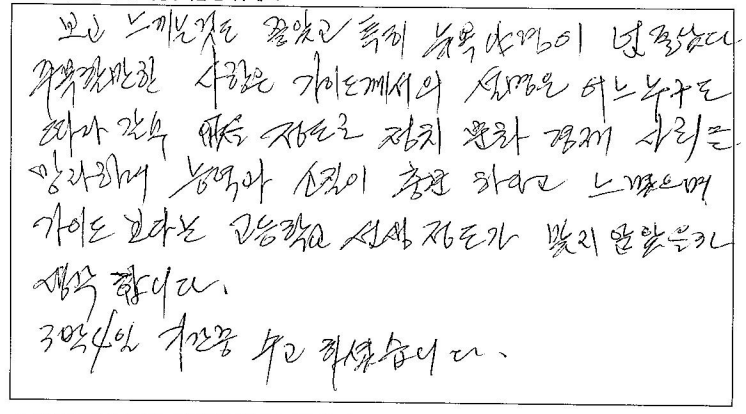 보고 느끼는것도 끝았고 특히 뉴욕 야경이 넘 좋았다
주목할만한 사항은 가이드께서의 설명은 어느누구도
따라 갈수 없을 정도로 정치 문화 경제 사회를
망라하며 능력과 소질이 충분 하다고 느꼈으며
가이드 보다는 고등학교 선생 정도가 맞지 않았을까
생각 합니다.
3박4일 기간동 수고 하셨습니다.